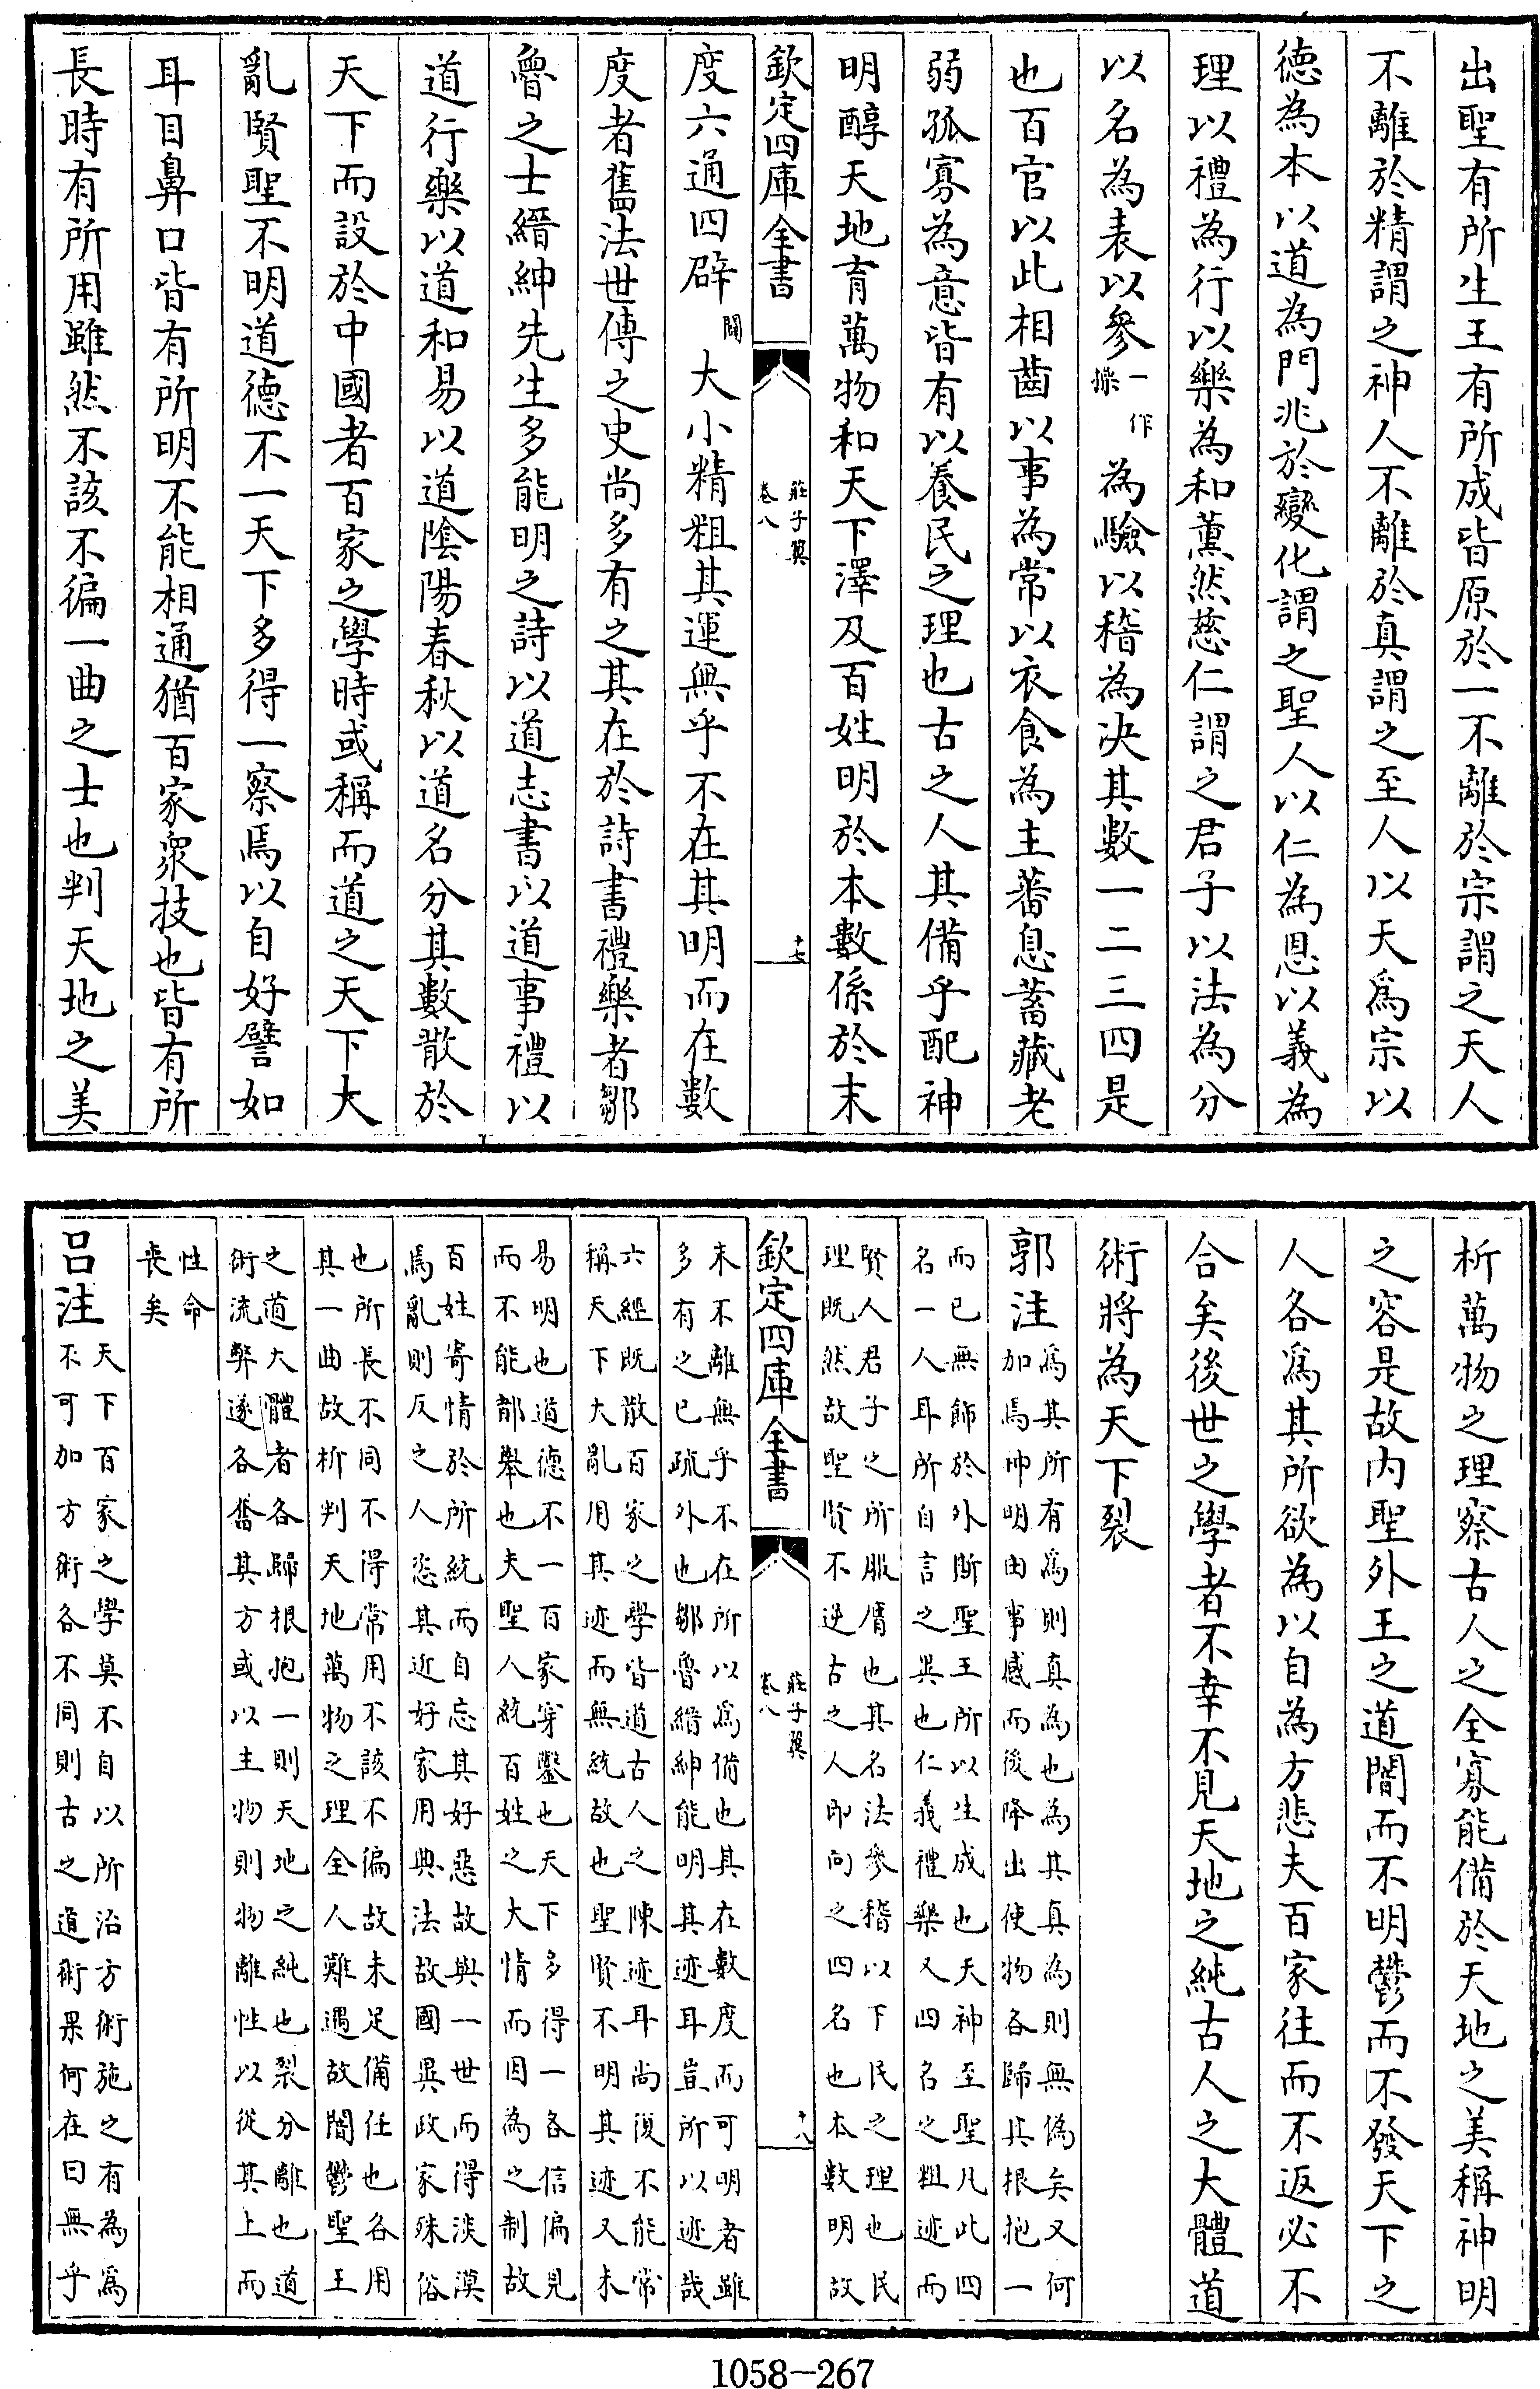 出聖有所生王有所成皆原於一不離於宗謂之天人
不離於精謂之神人不離於真謂之至人以天爲宗以
德為本以道為門兆於變化謂之聖人以仁為恩以義為
理以禮為行以樂為和薰然慈仁謂之君子以法為分
以名為表以參一作操為驗以稽為決其數一二三四是
也百官以此相齒以事為常以衣食為主蕃息蓄藏老
弱孤寡為意皆有以養民之理也古之人其備乎配神
明醇天地育萬物和天下澤及百姓明於本數係於末
欽定四庫全書
莊子翼
卷八
十七
度六通四辟闢大小精粗其運無乎不在其明而在數
度者舊法世傳之史尚多有之其在於詩書禮樂者鄒
魯之士縉紳先生多能明之詩以道志書以道事禮以
道行樂以道和易以道陰陽春秋以道名分其數散於
天下而設於中國者百家之學時或稱而道之天下大
亂賢聖不明道德不一天下多得一察焉以自好譬如
耳目鼻口皆有所明不能相通猶百家衆技也皆有所
長時有所用雖然不該不徧一曲之士也判天地之美
析萬物之理察古人之全寡能備於天地之美稱神明
之容是故内聖外王之道闇而不明鬱而不發天下之
人各爲其所欲為以自為方悲夫百家往而不返必不
合矣後世之學者不幸不見天地之純古人之大體道
術將為天下裂
郭注
爲其所有爲則真為也為其真為則無偽矣又何
加焉神明由事感而後降出使物各歸其根抱一
而已無飾於外斯聖王所以生成也天神至聖凡此四
名一人耳所自言之異也仁義禮樂又四名之粗迹而
賢人君子之所服膺也其名法參稽以下民之理也民
理既然故聖賢不逆古之人即向之四名也本數明故
欽定四庫全書
莊子翼
卷八
十八
末不離無乎不在所以爲備也其在數度而可明者雖
多有之已疏外也鄒魯縉紳能明其迹耳豈所以迹哉
六經既散百家之學皆道古人之陳迹耳尚復不能常
稱天下大亂用其迹而無統故也聖賢不明其迹又未
易明也道德不一百家穿鑿也天下多得一各信偏見
而不能都舉也夫聖人統百姓之大情而因為之制故
百姓寄情於所統而自忘其好惡故與一世而得淡漠
焉亂則反之人恣其近好家用典法故國異政家殊俗
也所長不同不得常用不該不徧故未足備任也各用
其一曲故析判天地萬物之理全人難遇故闇鬱聖王
之道大體者各歸根抱一則天地之純也裂分離也道
術流弊遂各奮其方或以主物則物離性以從其上而
性命
喪矣
吕注
天下百家之學莫不自以所治方術施之有為爲
不可加方術各不同則古之道術果何在曰無乎
1058-267